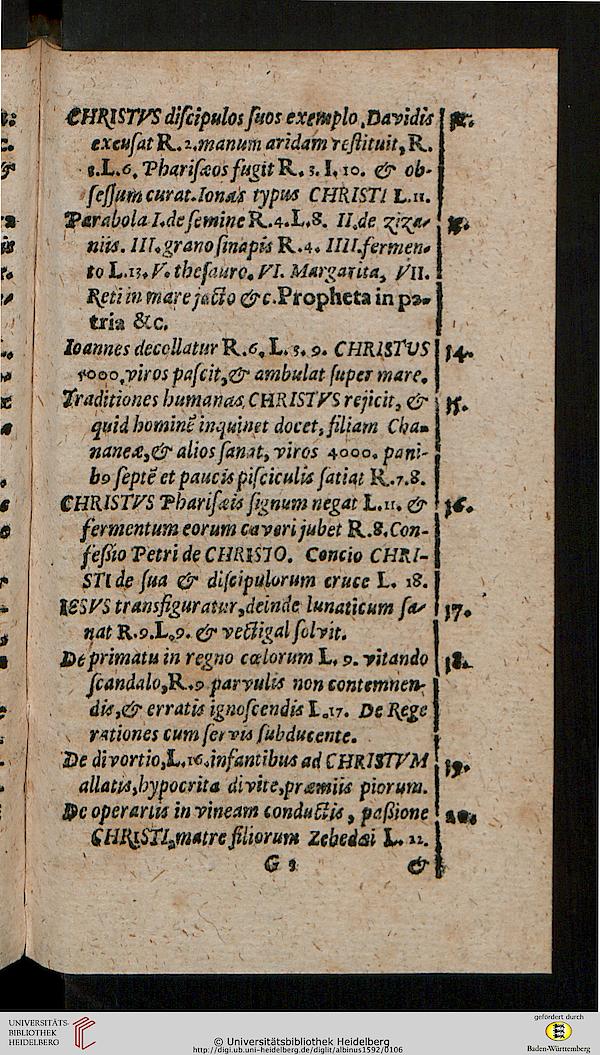 CHRISTVS diſcipulos ſuos exemplo Davidis 12.
excuſat R. 2. manum aridam reſtituit, R.
3. L. 6. Phariſæos fugit R. 3. I. 10. & ob-
ſeſſum curat. Ionas typus CHRISTI L. 11.
Parabola I. de ſemine R. 4. L. 8. II. de ziza- 13.
niis. III. grano ſinapis R. 4. IIII. fermen-
to L. 13. V. theſauro. VI. Margarita, VII.
Reti in mare jacto &c. Propheta in pa-
tria &c.
Ioannes decollatur R. 6. L. 3. 9. CHRISTUS 14.
5000. viros paſcit, & ambulat ſuper mare.
Traditiones humanas CHRISTVS rejicit, & 15.
quid hominē inquinet docet, filiam Cha-
naneæ, & alios ſanat, viros 4000. pani-
b9 ſeptē et paucis piſciculis ſatiat R. 7. 8.
CHRISTVS Phariſæis ſignum negat L. 11. & 16.
fermentum eorum caveri jubet R. 8. Con-
feſſio Petri de CHRISTO. Concio CHRI-
STI de ſua & diſcipulorum cruce L. 18.
IESVS transfiguratur, deinde lunaticum ſa- 17.
nat R. 9. L. 9. & vectigal ſolvit.
De primatu in regno cœlorum L. 9. vitando 18.
ſcandalo, R. 9 parvulis non contemnen-
dis, & erratis ignoſcendis L. 17. De Rege
rationes cum ſervis ſubducente.
De divortio, L. 16. infantibus ad CHRISTVM 19.
allatis, hypocrita divite, præmiis piorum.
De operariis in vineam conductis, paſſione 20.
CHRISTI, matre filiorum Zebedæi L. 22.
G &
UNIVERSITÄTS-
BIBLIOTHEK
HEIDELBERG
© Universitätsbibliothek Heidelberg
http://digi.ub.uni-heidelberg.de/diglit/albinus1592/0106
gefördert durch
Baden-Württemberg